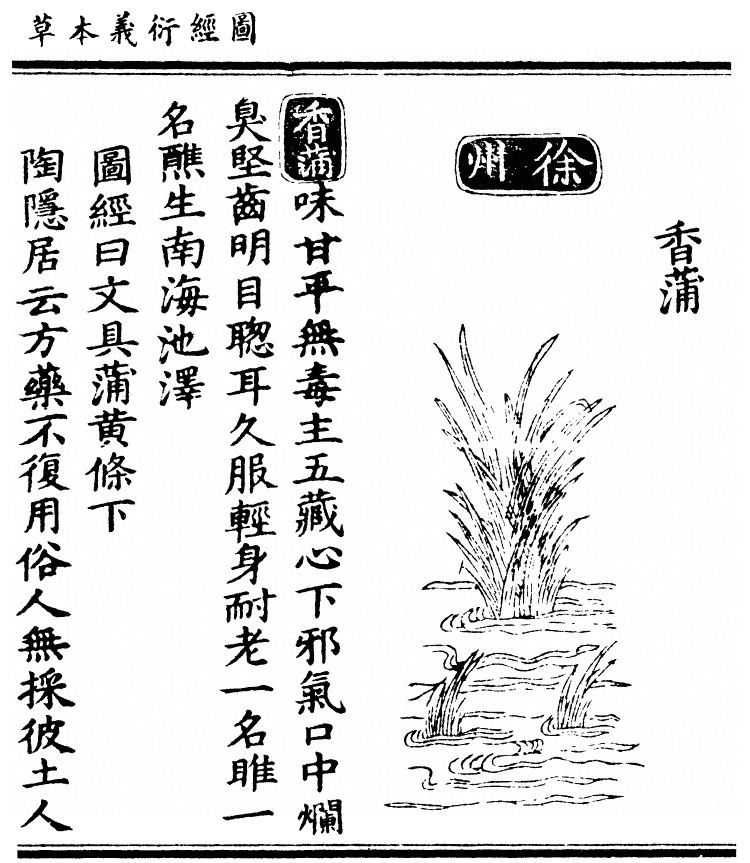 圖經衍義本草
香蒲
徐州
香蒲味甘平無毒主五藏心下邪氣口中爛
臭堅齒明目聦耳久服輕身耐老一名睢一
名醮生南海池澤
圖經曰文具蒲黄條下
陶隱居云方藥不復用俗人無採彼土人